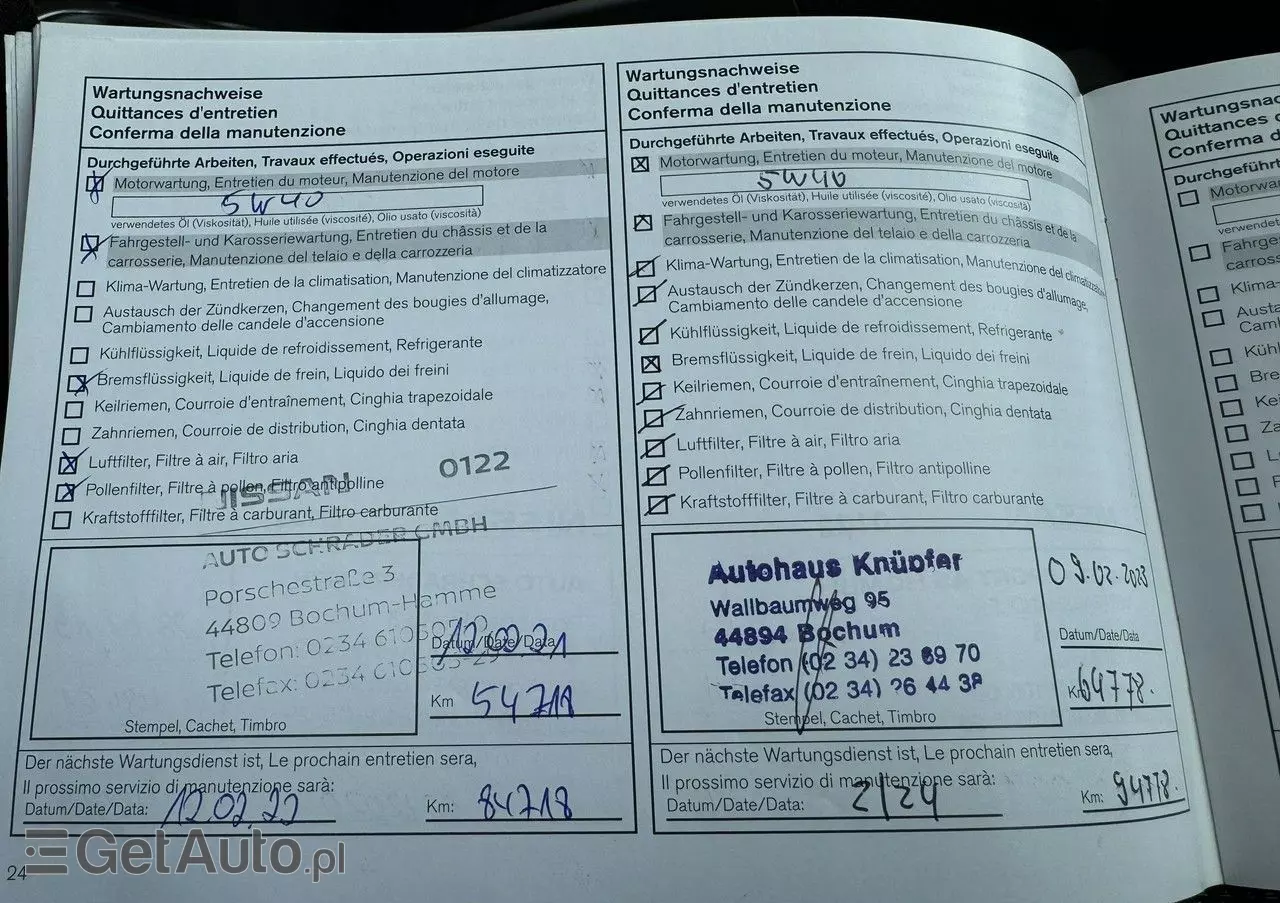 Wartungsnachweise
Quittances d'entretien
Conferma della manutenzione
Durchgeführte Arbeiten, Travaux effectués, Operazioni eseguite
Motorwartung, Entretien du moteur, Manutenzione del motore
5W40
verwendetes Öl (Viskosität), Huile utilisée (viscosité), Olio usato (viscosità)
Fahrgestell- und Karosseriewartung, Entretien du châssis et de la
carrosserie, Manutenzione del telaio e della carrozzeria
Klima-Wartung, Entretien de la climatisation, Manutenzione del climatizzatore
Austausch der Zündkerzen, Changement des bougies d'allumage,
Cambiamento delle candele d'accensione
Kühlflüssigkeit, Liquide de refroidissement, Refrigerante
Bremsflüssigkeit, Liquide de frein, Liquido dei freini
Keilriemen, Courroie d'entraînement, Cinghia trapezoidale
Zahnriemen, Courroie de distribution, Cinghia dentata
Luftfilter, Filtre à air, Filtro aria
Pollenfilter, Filtre à pollen, Filtro antipolline
Kraftstofffilter, Filtre à carburant, Filtro carburante
NISSAN 0122
AUTO SCHRADER GMBH
Porschestraße 3
44809 Bochum-Hamme
Telefon: 0234
Telefax: 0234
Datum/Date/Data
Km 54718
Stempel, Cachet, Timbro
Der nächste Wartungsdienst ist, Le prochain entretien sera,
Il prossimo servizio di manutenzione sarà:
Datum/Date/Data: 12.02.22 Km: 84718
24
Wartungsnachweise
Quittances d'entretien
Conferma della manutenzione
Durchgeführte Arbeiten, Travaux effectués, Operazioni eseguite
Motorwartung, Entretien du moteur, Manutenzione del motore
5W40
verwendetes Öl (Viskosität), Huile utilisée (viscosité), Olio usato (viscosità)
Fahrgestell- und Karosseriewartung, Entretien du châssis et de la
carrosserie, Manutenzione del telaio e della carrozzeria
Klima-Wartung, Entretien de la climatisation, Manutenzione del climatizzatore
Austausch der Zündkerzen, Changement des bougies d'allumage,
Cambiamento delle candele d'accensione
Kühlflüssigkeit, Liquide de refroidissement, Refrigerante
Bremsflüssigkeit, Liquide de frein, Liquido dei freini
Keilriemen, Courroie d'entraînement, Cinghia trapezoidale
Zahnriemen, Courroie de distribution, Cinghia dentata
Luftfilter, Filtre à air, Filtro aria
Pollenfilter, Filtre à pollen, Filtro antipolline
Kraftstofffilter, Filtre à carburant, Filtro carburante
Autohaus Knüpfer
Wallbaumweg 95
44894 Bochum
Telefon (02 34) 23 69 70
Telefax (02 34) 26 44 38
Stempel, Cachet, Timbro
09.02.2023
Datum/Date/Data
Km 64778.
Der nächste Wartungsdienst ist, Le prochain entretien sera,
Il prossimo servizio di manutenzione sarà:
Datum/Date/Data: 2/24 Km: 94778.
GetAuto.pl